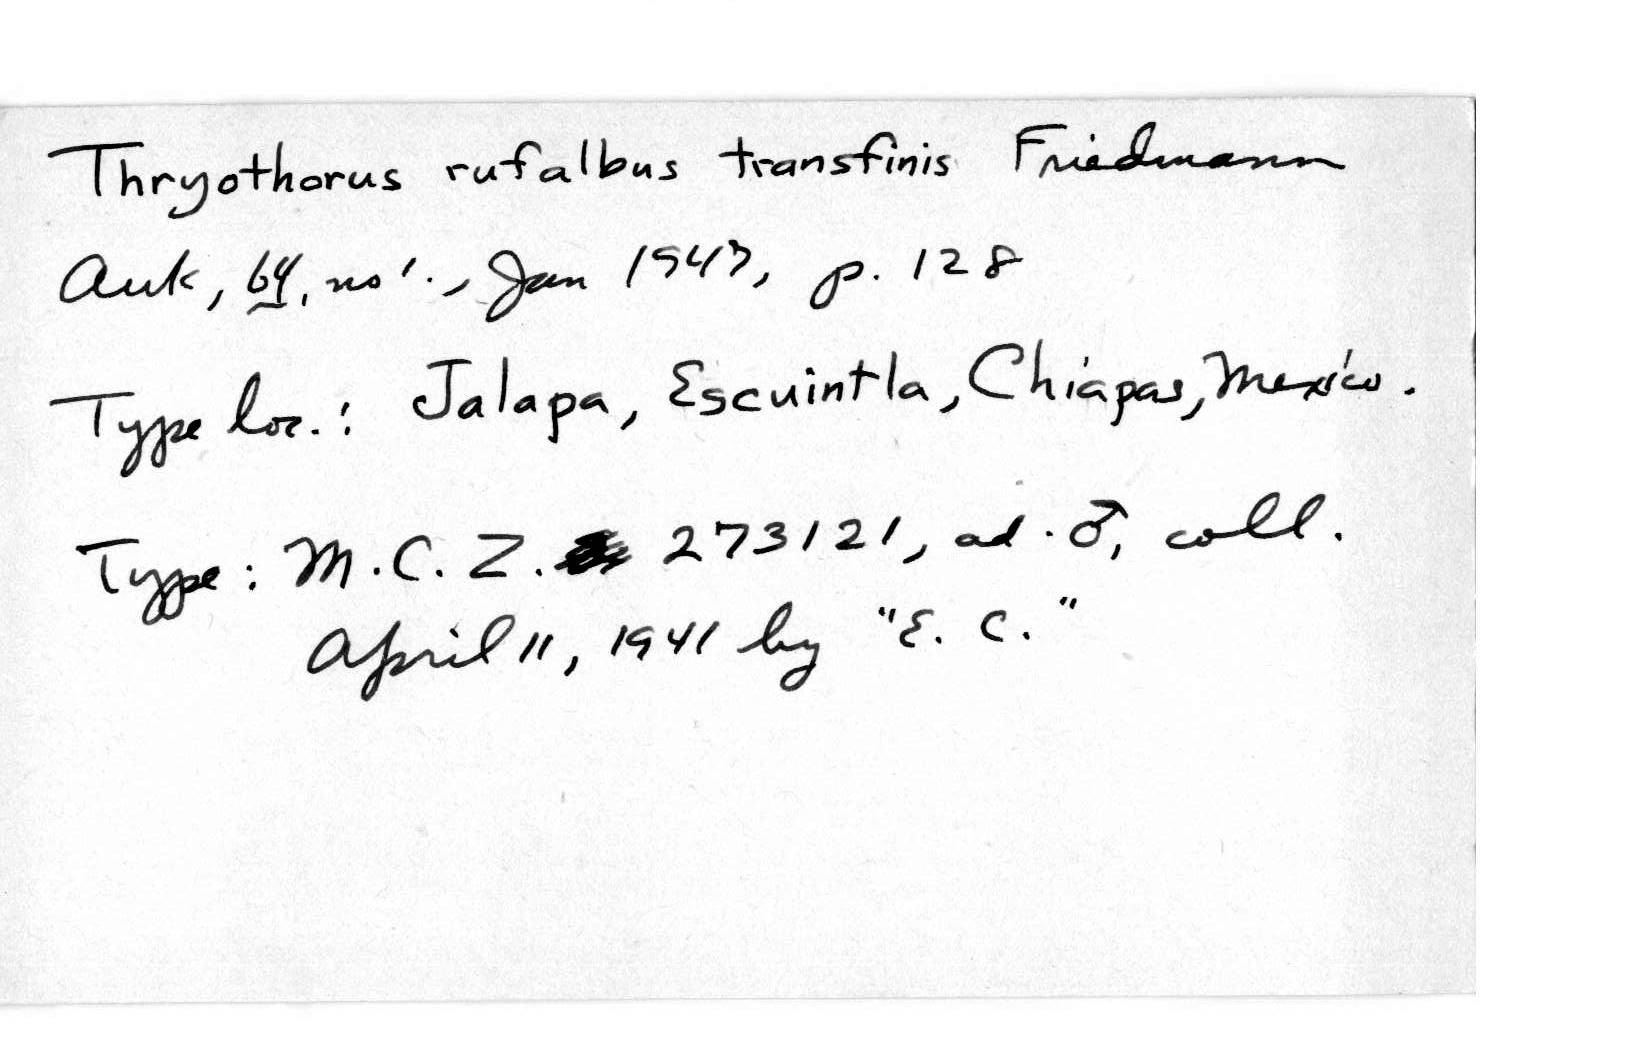 Thryothorus rufalbus transfinis Friedmann
Auk, 64, no 1., Jan 1947, p. 128
Type loc.: Jalapa, Escuintla, Chiapas, Mexico.
Type: M.C.Z. 273121, ad. ♂, coll.
April 11, 1941 by "E. C."